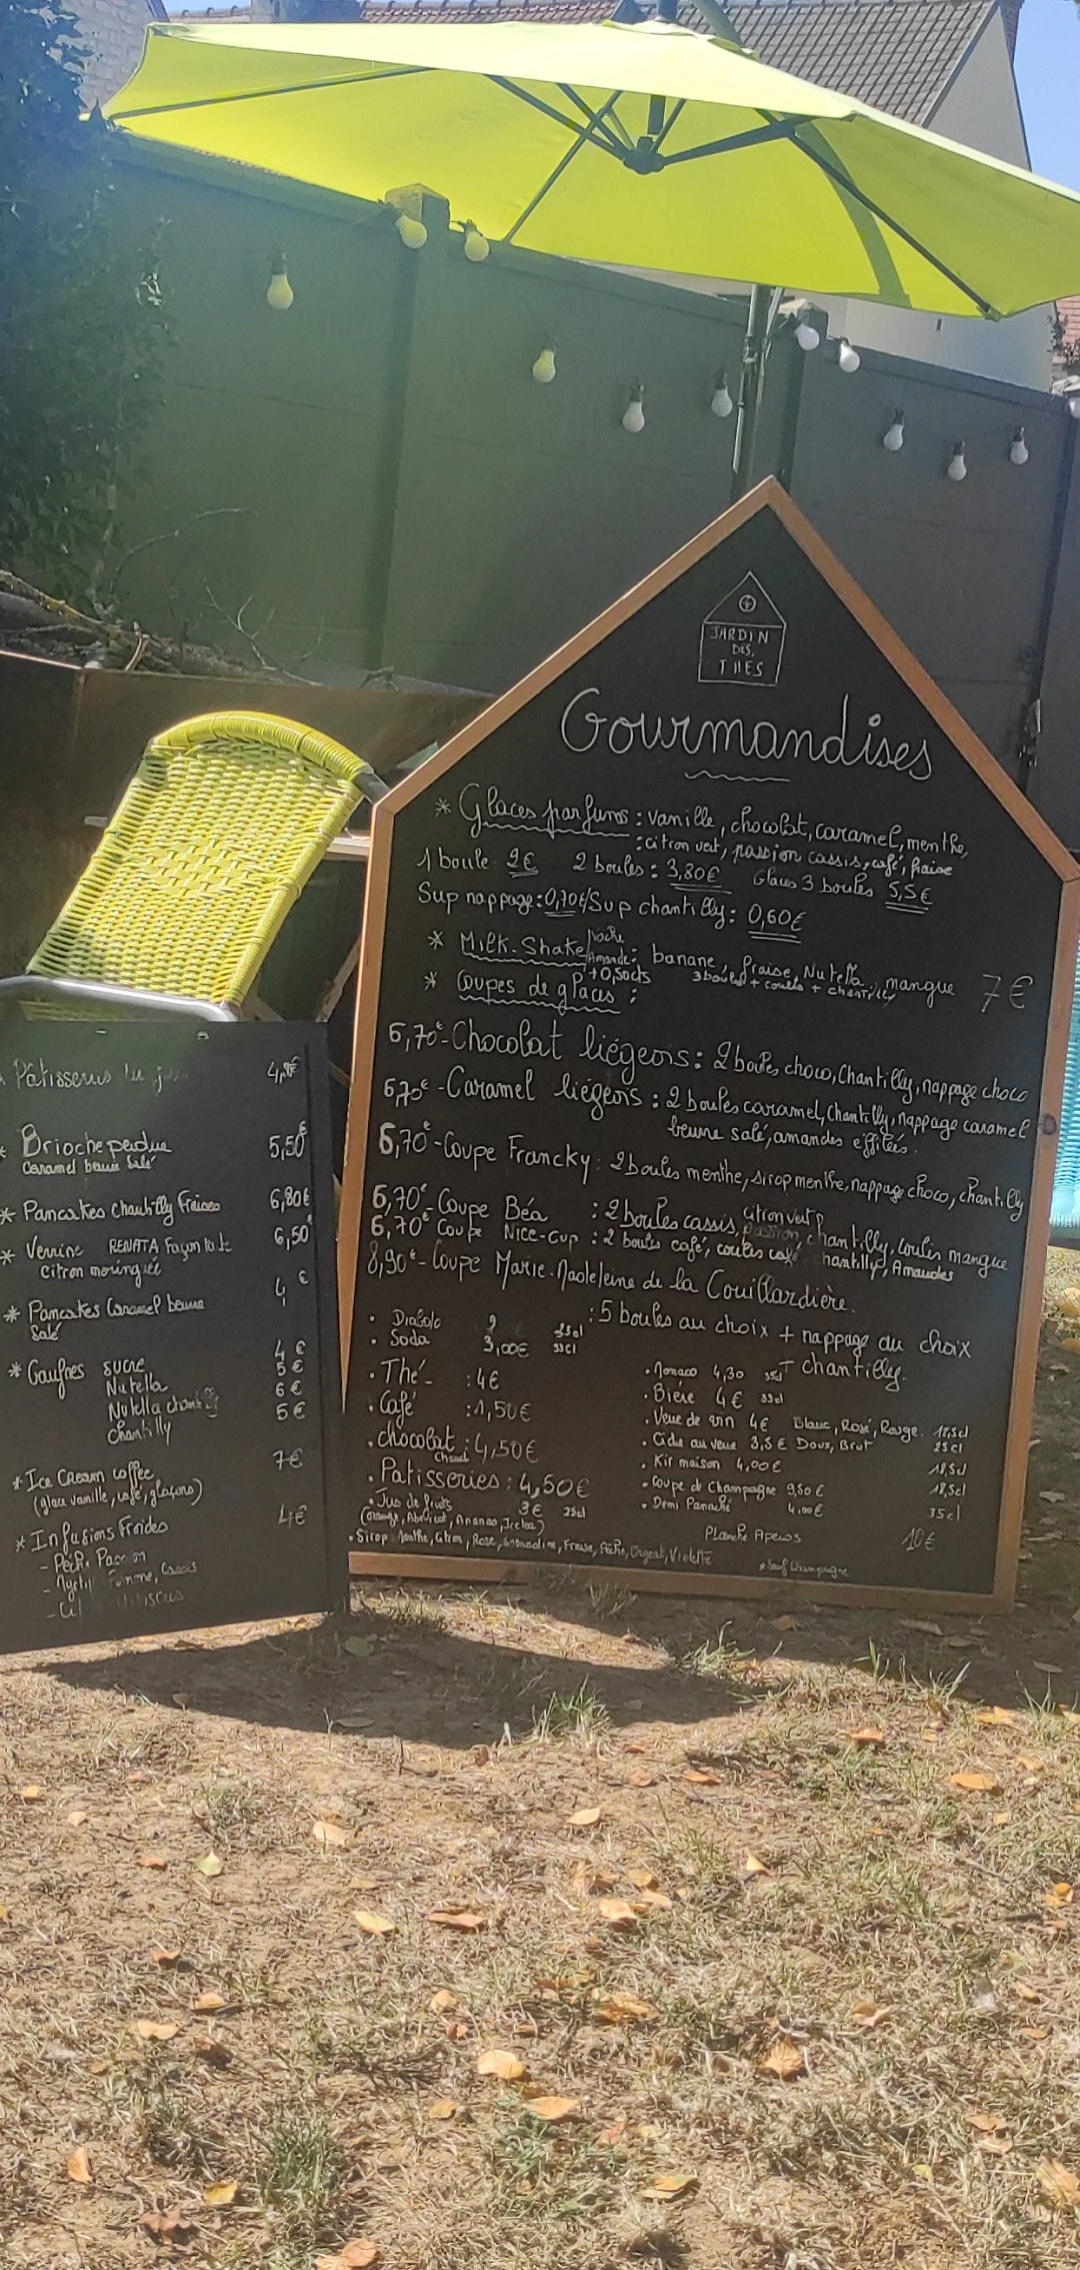 JARDIN
DES
THES
Gourmandises
* Glaces parfums : vanille, chocolat, caramel, menthe,
: citron vert, passion cassis, café, fraise
1 boule 2€ 2 boules : 3,80€ Glaces 3 boules 5,5€
Sup nappage : 0,70€/Sup chantilly : 0,60€
* Milk-Shake Vache Amande : banane, fraise, Nutella, mangue 7€
+0,50cts 3 boules + coulis + chantilly
* Coupes de glaces :
6,70€-Chocolat liégeois : 2 boules choco, Chantilly, nappage choco
6,70€-Caramel liégeois : 2 boules caramel, chantilly, nappage caramel
beurre salé, amandes effilées.
6,70€-Coupe Francky : 2 boules menthe, sirop menthe, nappage choco, chantilly
6,70€-Coupe Béa : 2 boules cassis, citron vert chantilly, coulis mangue
6,70€ Coupe Nice-Cup : 2 boules café, coulis café chantilly, Amandes
8,90€-Coupe Marie-Madeleine de la Couillardière.
: 5 boules au choix + nappage au choix
+ chantilly.
• Diabolo 33cl
• Soda 3,00€ 33cl
• Thé- : 4€
• Café : 1,50€
• chocolat : 4,50€
Chaud
• Patisseries : 4,50€
• Jus de fruits 3€ 25cl
(orange, Abricot, Ananas, Ice tea)
• Sirop : Menthe, Citron, Rose, Grenadine, Fraise, Pêche, Orgeat, Violette
• Monaco 4,30 35cl
• Bière 4€ 33cl
• Verre de vin 4€ Blanc, Rosé, Rouge. 18,5cl
• Cidre au verre 3,5€ Doux, Brut 25cl
• Kir maison 4,00€ 18,5cl
• Coupe de Champagne 9,50€ 18,5cl
• Demi Panaché 4,00€ 35cl
Planche Apéros 10€
* Sauf Champagne
* Pâtisseries du j
* Brioche perdue 5,50€
Caramel beurre salé
* Pancakes chantilly fraises 6,80€
* Verrine RENATA Façon tarte 6,50€
citron meringuée
* Pancakes Caramel beurre 4€
Salé
* Gaufres sucre 4€
Nutella 5€
Nutella chantilly 6€
chantilly 5€
* Ice Cream coffee 7€
(glace vanille, café, glaçons)
* Infusions Froides 4€
- Pêche Passion